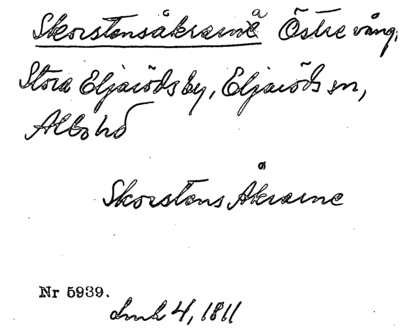 Skorstensåkrarne å Östre vång,
Stora Eljaröds by, Eljaröds sn,
Albo hd
Skorstens Åkrarne
Nr 5939.
4, 1811